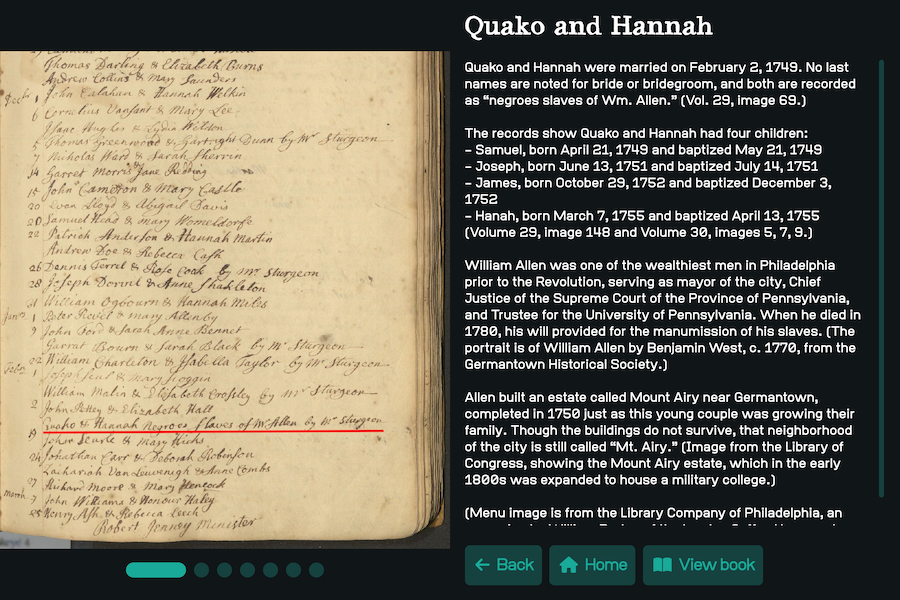 Thomas Darling & Elizabeth Burns
Andrew Collins & Mary Saunders
1 John Calahan & Hannah Welkin
6 Cornelius Vansant & Mary Lee
Isaac Hughs & Lydia Wilson
Thomas Greenwood & Gartright Dunn by Mr Sturgeon
7 Nicholas Ward & Sarah Sherrin
14 Garret Morris Jane Redding
15 John Cameron & Mary Castle
20 Evan Lloyd & Abigail Davis
20 Samuel Head & Mary Womeldorfe
22 Patrick Anderson & Hannah Martin
Andrew Doe & Rebecca Cash
26 Dennis Terrel & Rose Cook by Mr Sturgeon
28 Joseph Dorint & Anne Shakleton
31 William Ogbourn & Hannah Miles
1 Peter Revel & Mary Allenby
9 John Ford & Sarah Anne Bennet
Garrat Bourn & Sarah Black by Mr Sturgeon
William Charleton & Isabella Taylor by Mr Sturgeon
Joseph & Mary Scoggin
William Malin & Elisabeth Crossley by Mr Sturgeon
2 John Petley & Elizabeth Hall
Quako & Hannah Negroes Slaves of Wm Allen by Mr Sturgeon
19 John Searle & Mary Hicks
24 Jonathan Carr & Deborah Robinson
Zachariah Van Leuvenigh & Anne Combs
27 Richard Moore & Mary Hencock
March 7 John Williams & Honour Haley
25 Henry Ash & Rebecca Leech
Robert Jenney Minister
Quako and Hannah
Quako and Hannah were married on February 2, 1749. No last
names are noted for bride or bridegroom, and both are recorded
as “negroes slaves of Wm. Allen.” (Vol. 29, image 69.)
The records show Quako and Hannah had four children:
– Samuel, born April 21, 1749 and baptized May 21, 1749
– Joseph, born June 13, 1751 and baptized July 14, 1751
– James, born October 29, 1752 and baptized December 3,
1752
– Hanah, born March 7, 1755 and baptized April 13, 1755
(Volume 29, image 148 and Volume 30, images 5, 7, 9.)
William Allen was one of the wealthiest men in Philadelphia
prior to the Revolution, serving as mayor of the city, Chief
Justice of the Supreme Court of the Province of Pennsylvania,
and Trustee for the University of Pennsylvania. When he died in
1780, his will provided for the manumission of his slaves. (The
portrait is of William Allen by Benjamin West, c. 1770, from the
Germantown HIstorical Society.)
Allen built an estate called Mount Airy near Germantown,
completed in 1750 just as this young couple was growing their
family. Though the buildings do not survive, that neighborhood
of the city is still called “Mt. Airy.” (Image from the Library of
Congress, showing the Mount Airy estate, which in the early
1800s was expanded to house a military college.)
(Menu image is from the Library Company of Philadelphia, an
Back
Home
View book